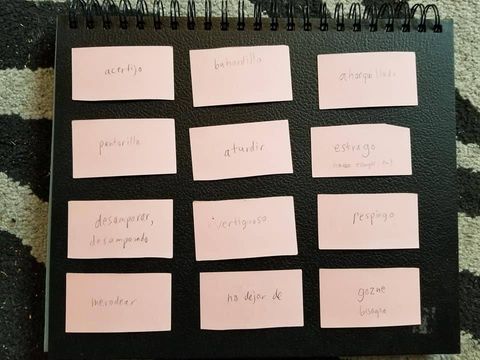 acertijo
buhardilla
ahorquillado
pantorilla
aturdir
estrago
desamparar,
desamparado
vertiginoso
respingo
merodear
no dejar de
gozne
bisagra